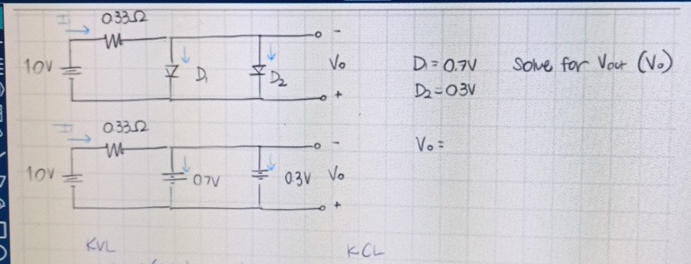 I 0.33Ω
-
10V D₁ D₂ Vo D₁ = 0.7V Solve for Vout (Vo)
+ D₂ = 0.3V
I 0.33Ω
- Vo =
10V 0.7V 0.3V Vo
+
KVL KCL